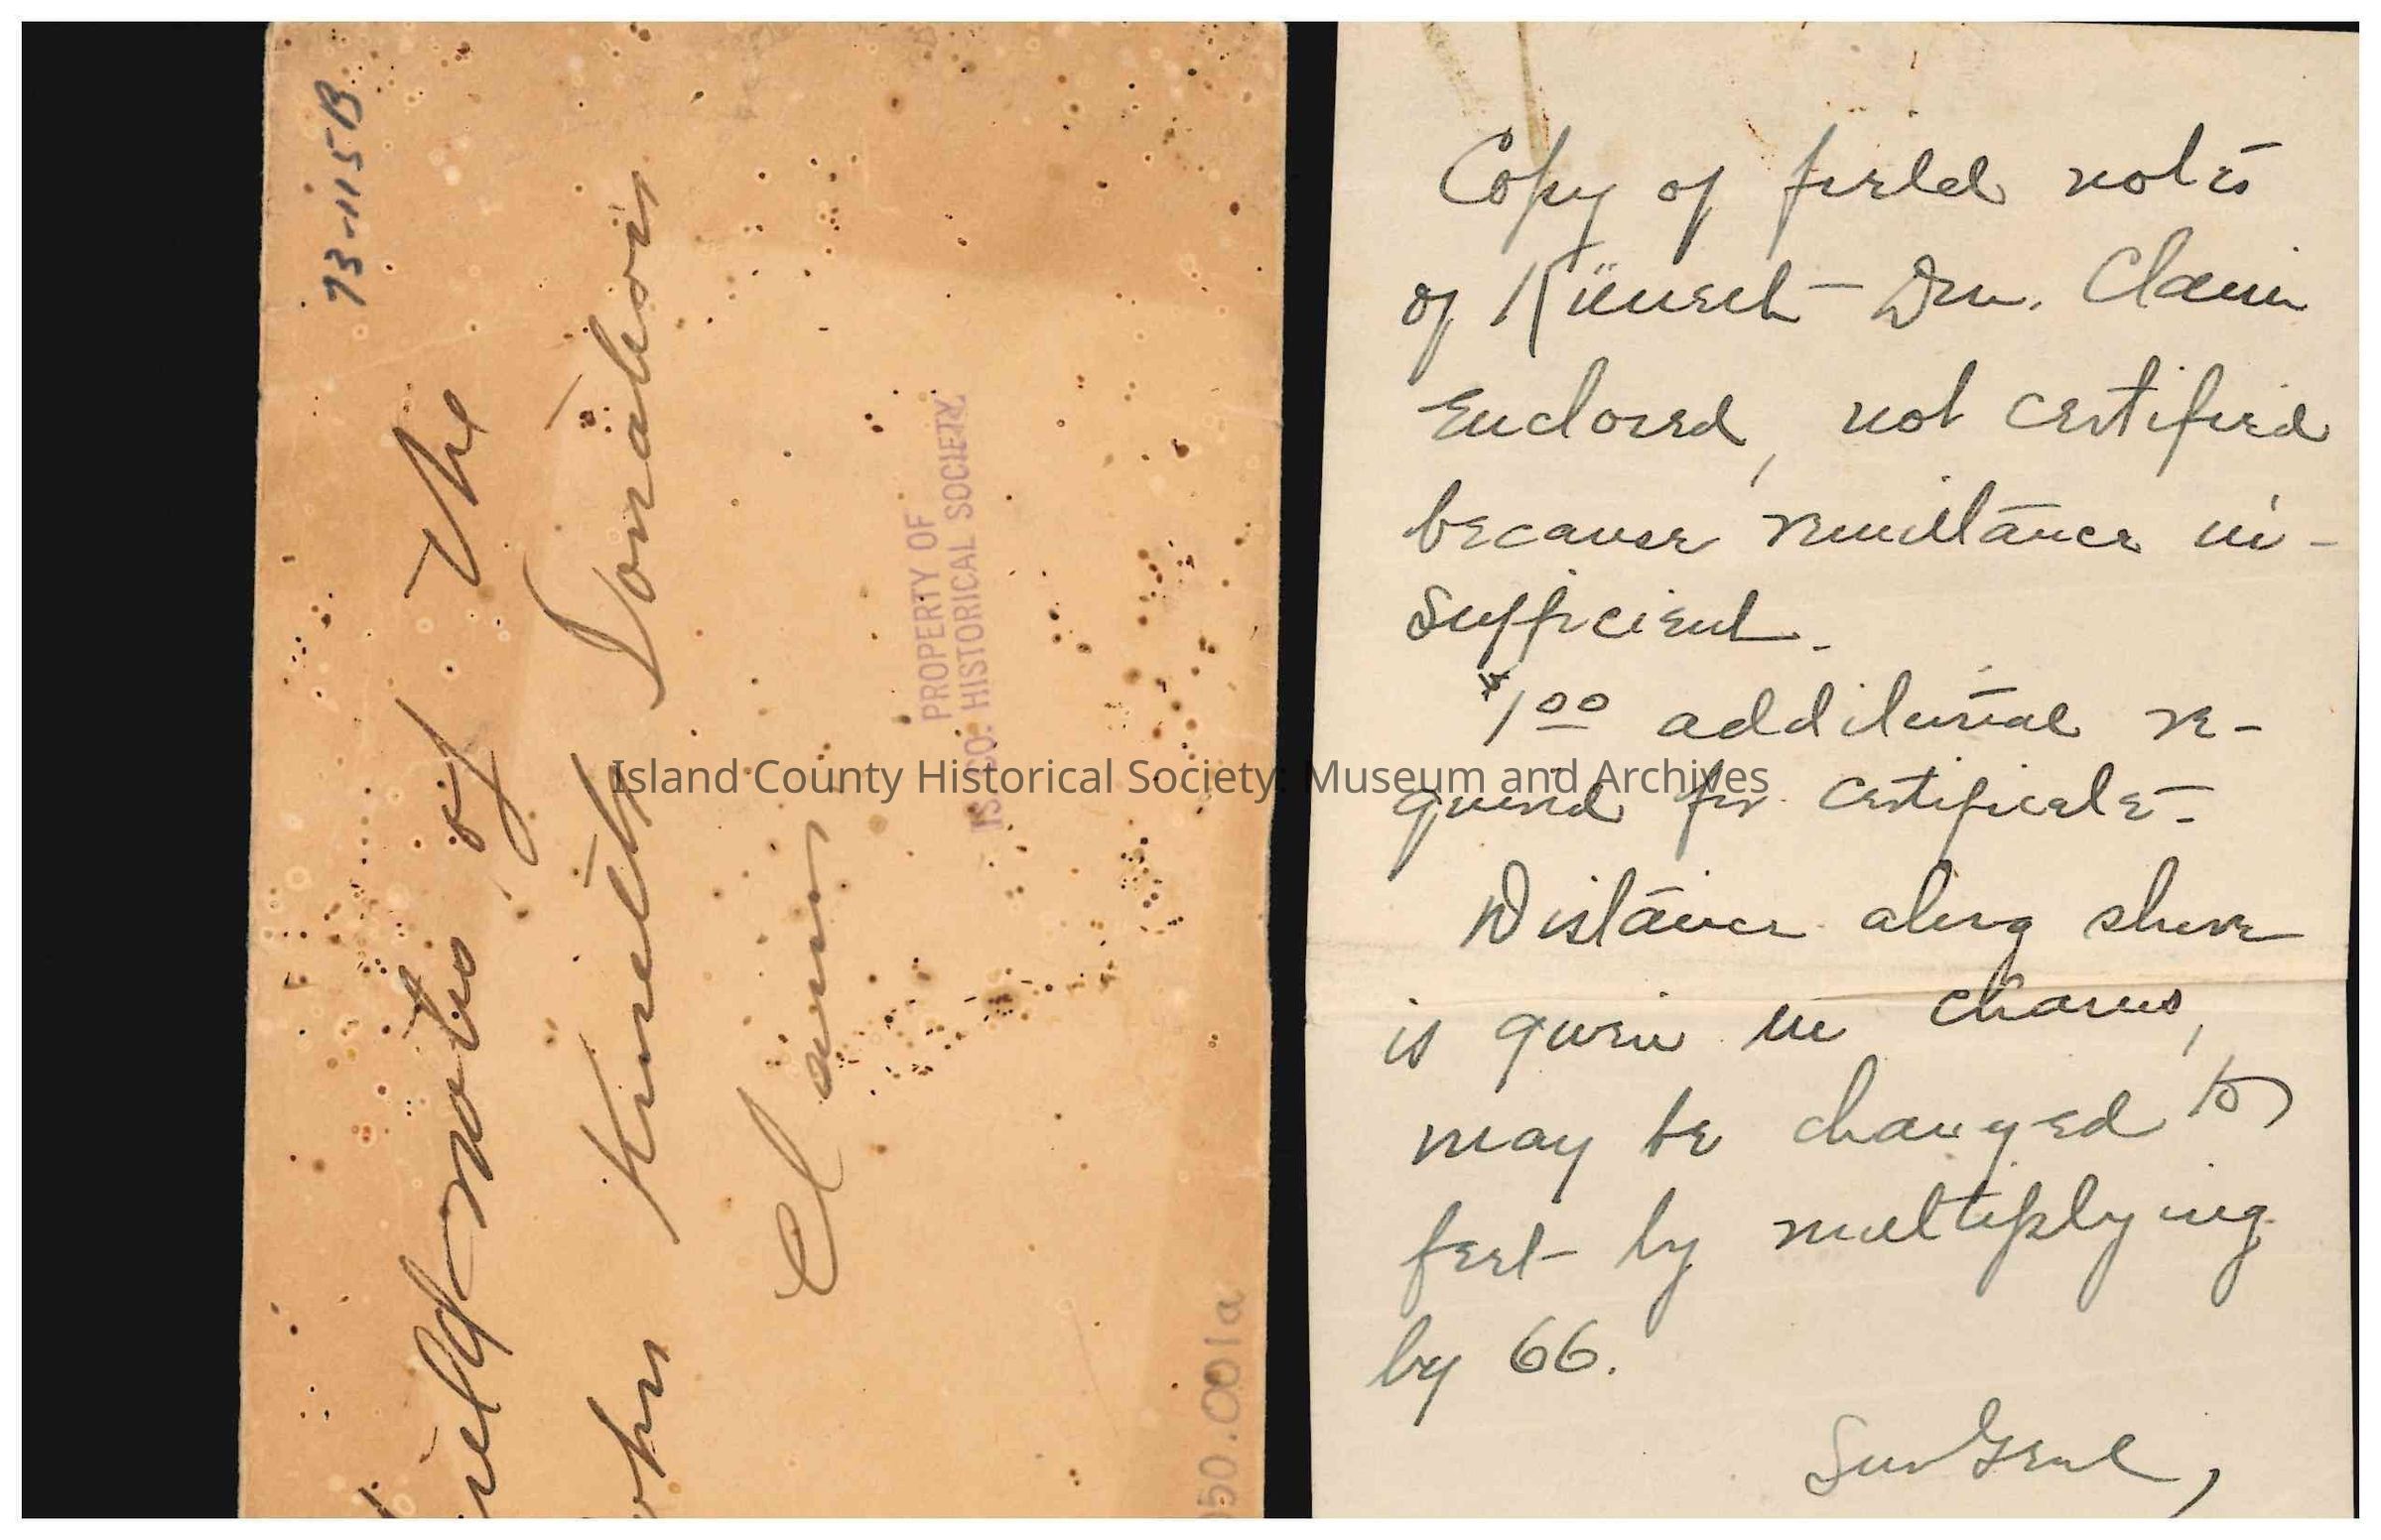 73-115B
Field notes of the
John Kineth Donation
Claim
PROPERTY OF
IS. CO. HISTORICAL SOCIETY
050.001a
Island County Historical Society: Museum and Archives
Copy of field notes
of Don. Claim
Enclosed, not certified
because remittance in-
sufficient.
$1 00 additional re-
quired for certificate.
Distance along shore
is given in chains,
may be changed to
feet by multiplying
by 66.
Sur Genl,